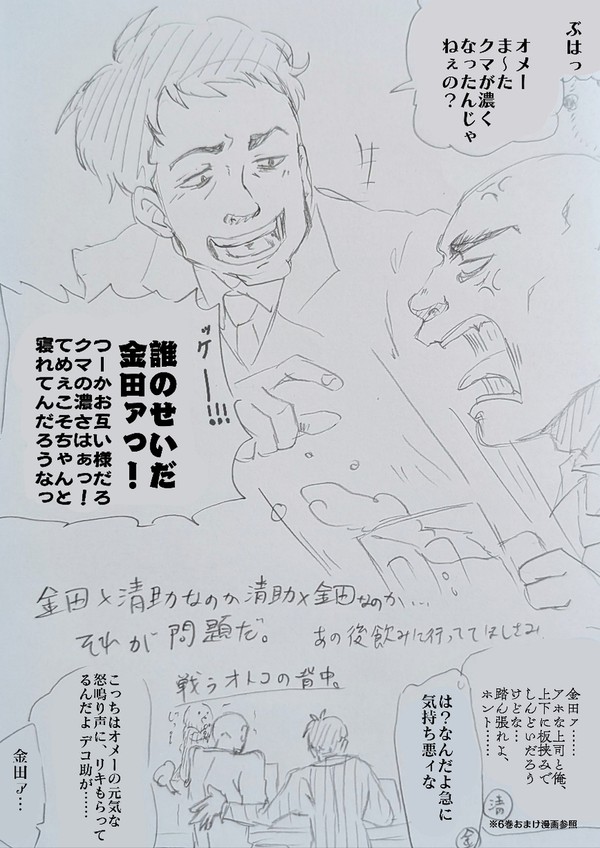 ぶはっ
オメー
ま〜た
クマが濃く
なったんじゃ
ねぇの?
ッケー!!!
誰のせいだ
金田ァっ!
つーかお互い様だろ
クマの濃さはぁっ!
てめぇこそちゃんと
寝れてんだろうなっ
金田×清助なのか清助×金田なのか…
それが問題だ。
あの後飲みに行っててほしさみ
戦うオトコの背中。
金田ァ……
アホな上司と俺、
上下に板挟みで
しんどいだろう
けどな…
踏ん張れよ、
ホント……
清
は?なんだよ急に
気持ち悪ィな
金
こっちはオメーの元気な
怒鳴り声に、リキもらって
るんだよ デコ助が……
金田ァ…
※6巻おまけ漫画参照